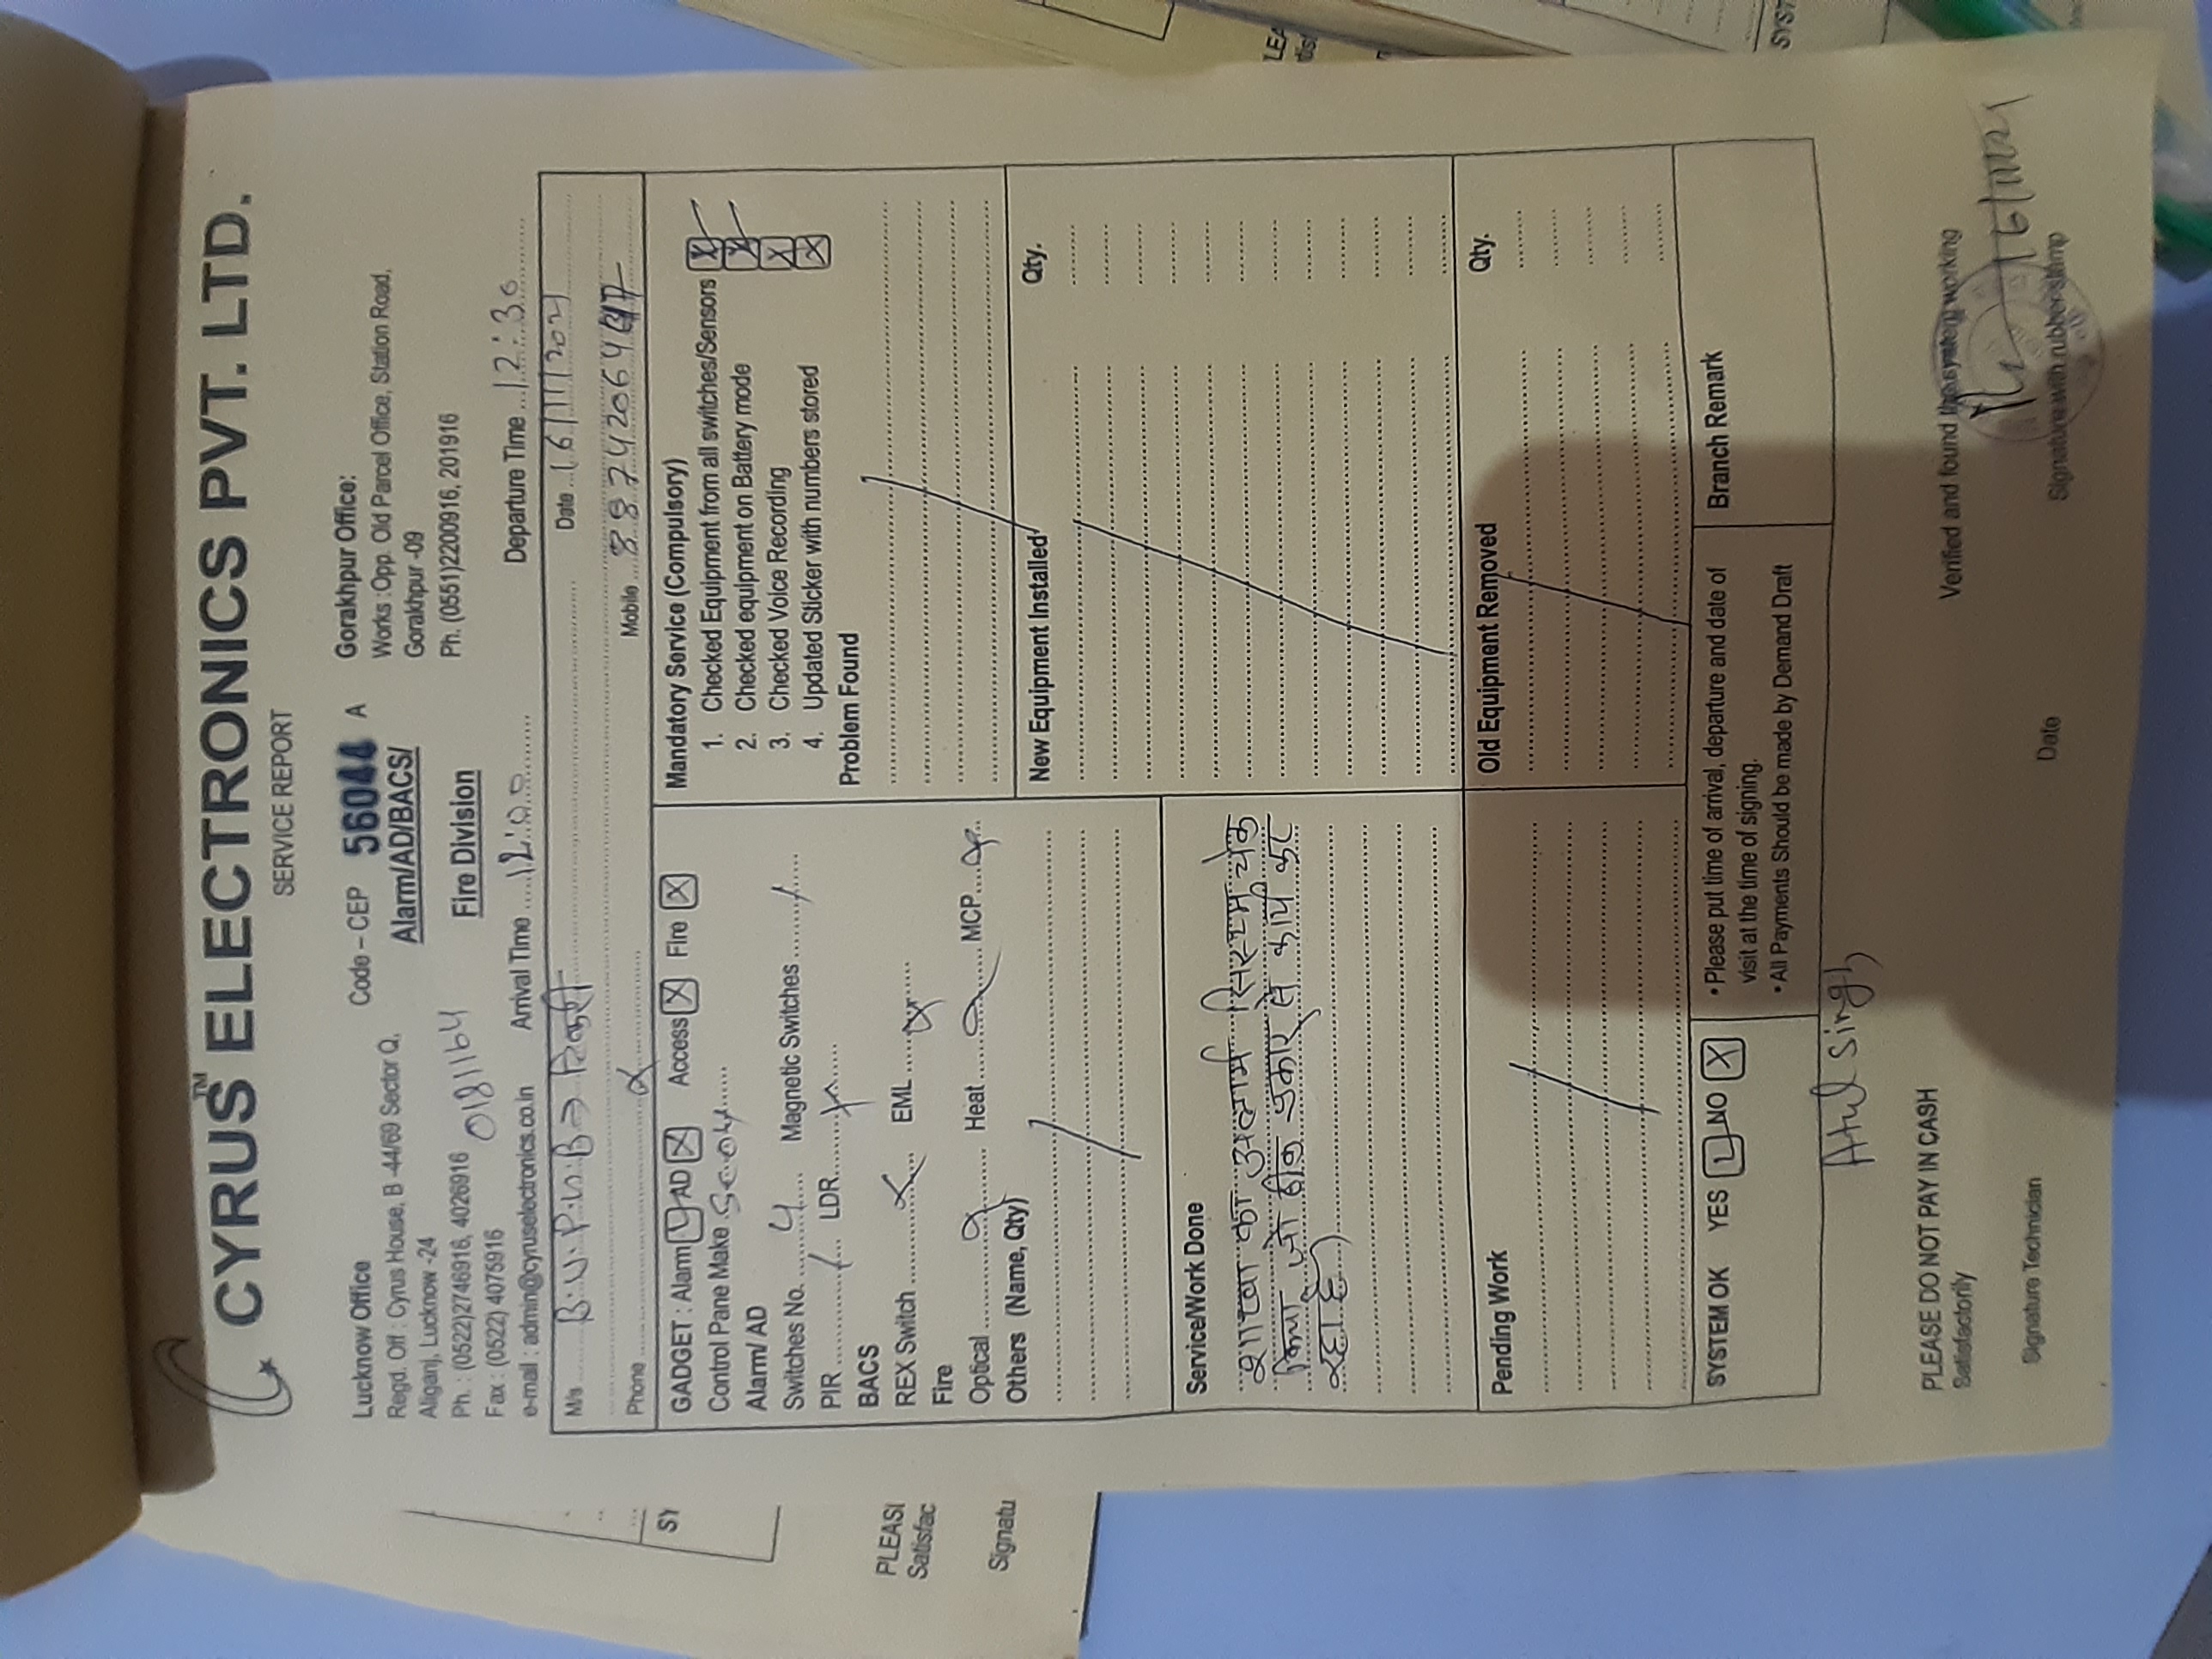 CYRUS™ ELECTRONICS PVT. LTD.
SERVICE REPORT
Lucknow Office
Regd. Off : Cyrus House, B -44/69 Sector Q,
Aliganj, Lucknow -24
Ph. : (0522)2746916, 4026916
Fax : (0522) 4075916
e-mail : admin@cyruselectronics.co.in
0181164
Code – CEP 56044 A
Alarm/AD/BACS/
Fire Division
Gorakhpur Office:
Works :Opp. Old Parcel Office, Station Road,
Gorakhpur -09
Ph. (0551)2200916, 201916
Arrival Time 12:00
Departure Time 12:30
M/s B.U.P.G.B → टिकरी
Date 16/11/2021
Phone
Mobile
GADGET : Alarm AD X Access X Fire X
Control Pane Make
Alarm/ AD
Switches No. 4 Magnetic Switches
PIR LDR
BACS
REX Switch EML
Fire
Optical Heat MCP
Others (Name, Qty)
Mandatory Service (Compulsory)
1. Checked Equipment from all switches/Sensors
2. Checked equipment on Battery mode
3. Checked Voice Recording X
4. Updated Sticker with numbers stored X
Problem Found
New Equipment Installed Qty.
Service/Work Done
शाखा का अलार्म सिस्टम चेक
किया जो ठीक प्रकार से कार्य कर
रहा है)
Pending Work
Old Equipment Removed Qty.
SYSTEM OK YES NO X
• Please put time of arrival, departure and date of
visit at the time of signing.
• All Payments Should be made by Demand Draft
Branch Remark
Atul Singh
PLEASE DO NOT PAY IN CASH
Satisfactorily
Verified and found the system working
16/11/21
Signature Technician
Date
Signature with rubber stamp
PLEASE
Satisfac
Signatu